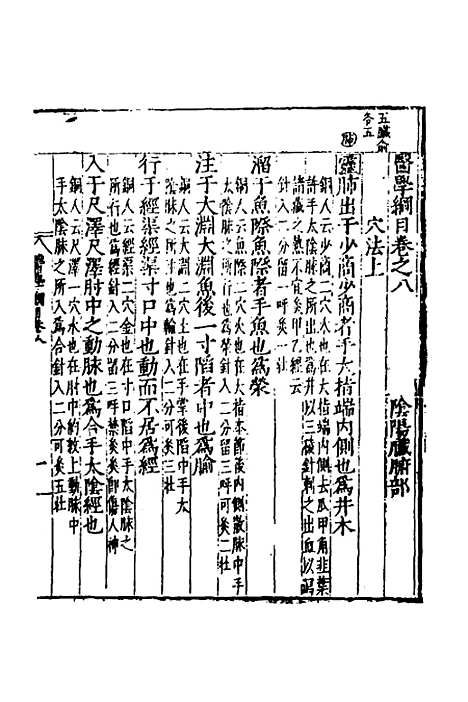 醫學綱目卷之八
陰陽臟腑部
穴法上
五臟俞
各五
靈肺出于少商少商者手大指端内側也爲井木
銅人云少商二穴木也在大指端内側去爪甲角韭葉
許手太陰脉之所出也爲井以三稜針刺之出血以
諸臟之熱不宜灸甲乙經云
針入一分留一呼灸一壯
溜于魚際魚際者手魚也爲滎
銅人云魚際二穴火也在大指本節後内側散脉中手
太陰脉之所溜也爲滎針入二分留三呼可灸二壯
注于大淵大淵魚後一寸陷者中也爲腧
銅人云大淵二穴土也在手掌後陷中手太
陰脉之所注也爲輸針入二分可灸三壯
行于經渠經渠寸口中也動而不居爲經
銅人云經渠二穴金也在寸口陷中手太陰脉之
所行也爲經針入二分留三呼禁灸灸即傷人神
入于尺澤尺澤肘中之動脉也爲合手太陰經也
銅人云尺澤二穴水也在肘中約紋上動脉中
手太陰脉之所入爲合針入二分可灸五壯